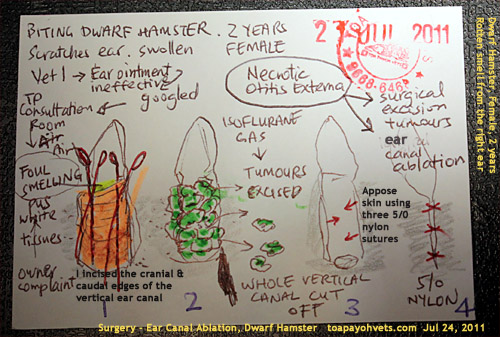 BITING DWARF HAMSTER. 2 YEARS
FEMALE
Scratches ear. swollen
27 JUL 2011
9668-6468
Vet 1 → Ear ointment
ineffective
googled
Necrotic
Otitis Externa
surgical
excision
tumours
ear
canal
ablation
TP
Consultation
Room
Air
Air
FOUL
SMELLING
pus
white
tissues
owner
complaint
ISOFLURANE
GAS
TUMOURS
EXCISED
Appose
skin using
three 5/0
nylon
sutures
I incised the cranial &
caudal edges of the
vertical ear canal
WHOLE VERTICAL
CANAL CUT
OFF
5/0
NYLON
1
2
3
4
Surgery - Ear Canal Ablation, Dwarf Hamster toapayohvets.com Jul 24, 2011
Dwarf Hamster, female, 2 years
Rotten smell from the right ear